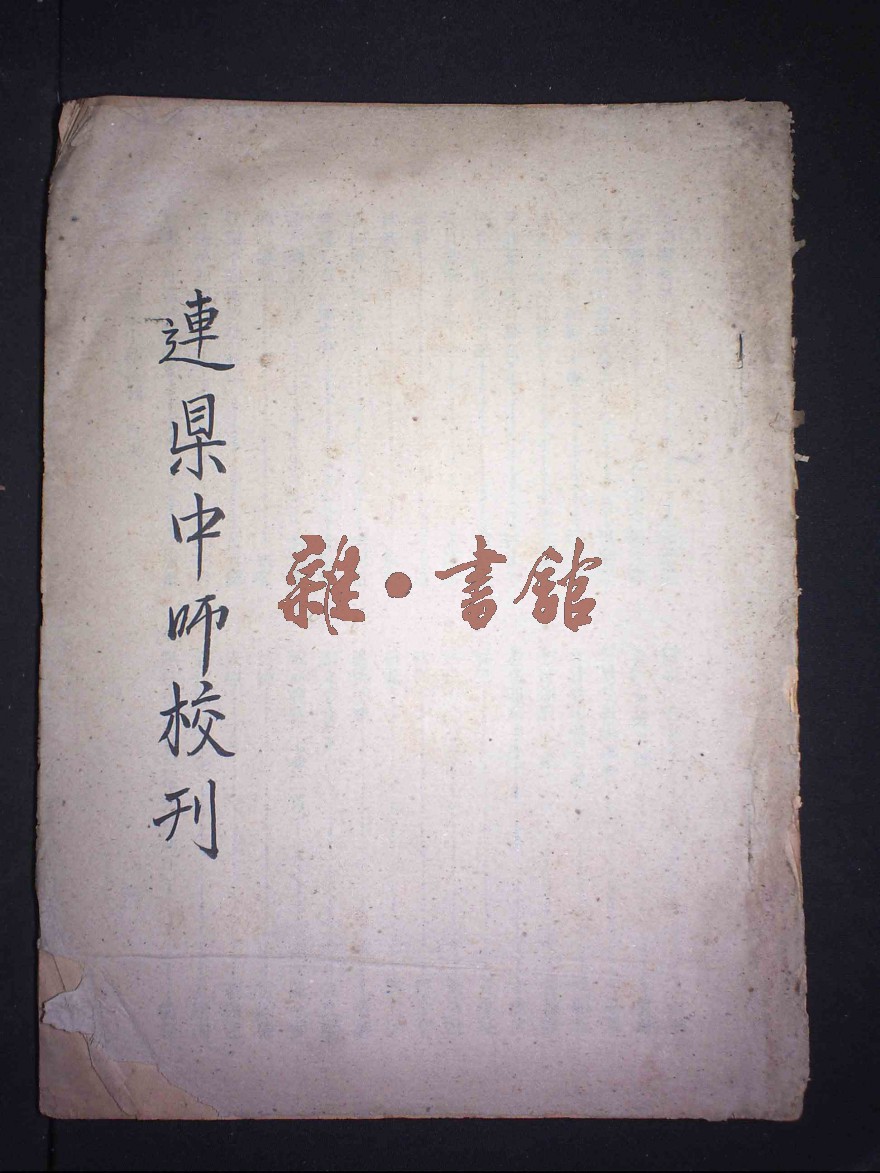 連県中师校刊
雜·書舘